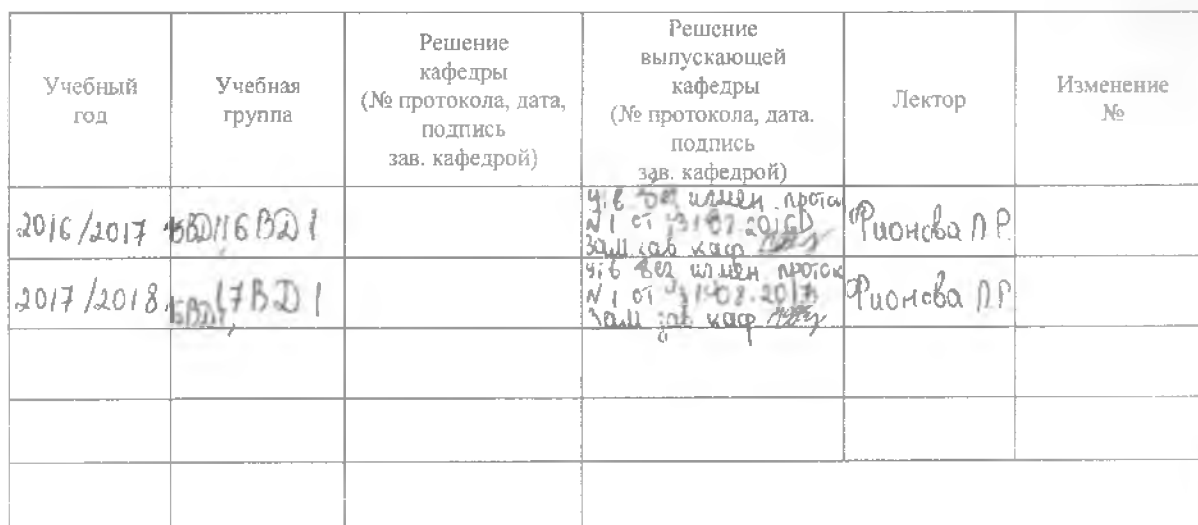 Учебный
год
Учебная
группа
Решение
кафедры
(№ протокола, дата,
подпись
зав. кафедрой)
Решение
выпускающей
кафедры
(№ протокола, дата.
подпись
зав. кафедрой)
Лектор
Изменение
№
2016/2017
16ВД1
утв без измен. проток
N 1 от 31.08.2016
Зам зав каф
Фионова Л.Р.
2017/2018
17ВД1
утв без измен проток
N 1 от 31.08.2017
Зам зав каф
Фионова Л.Р.